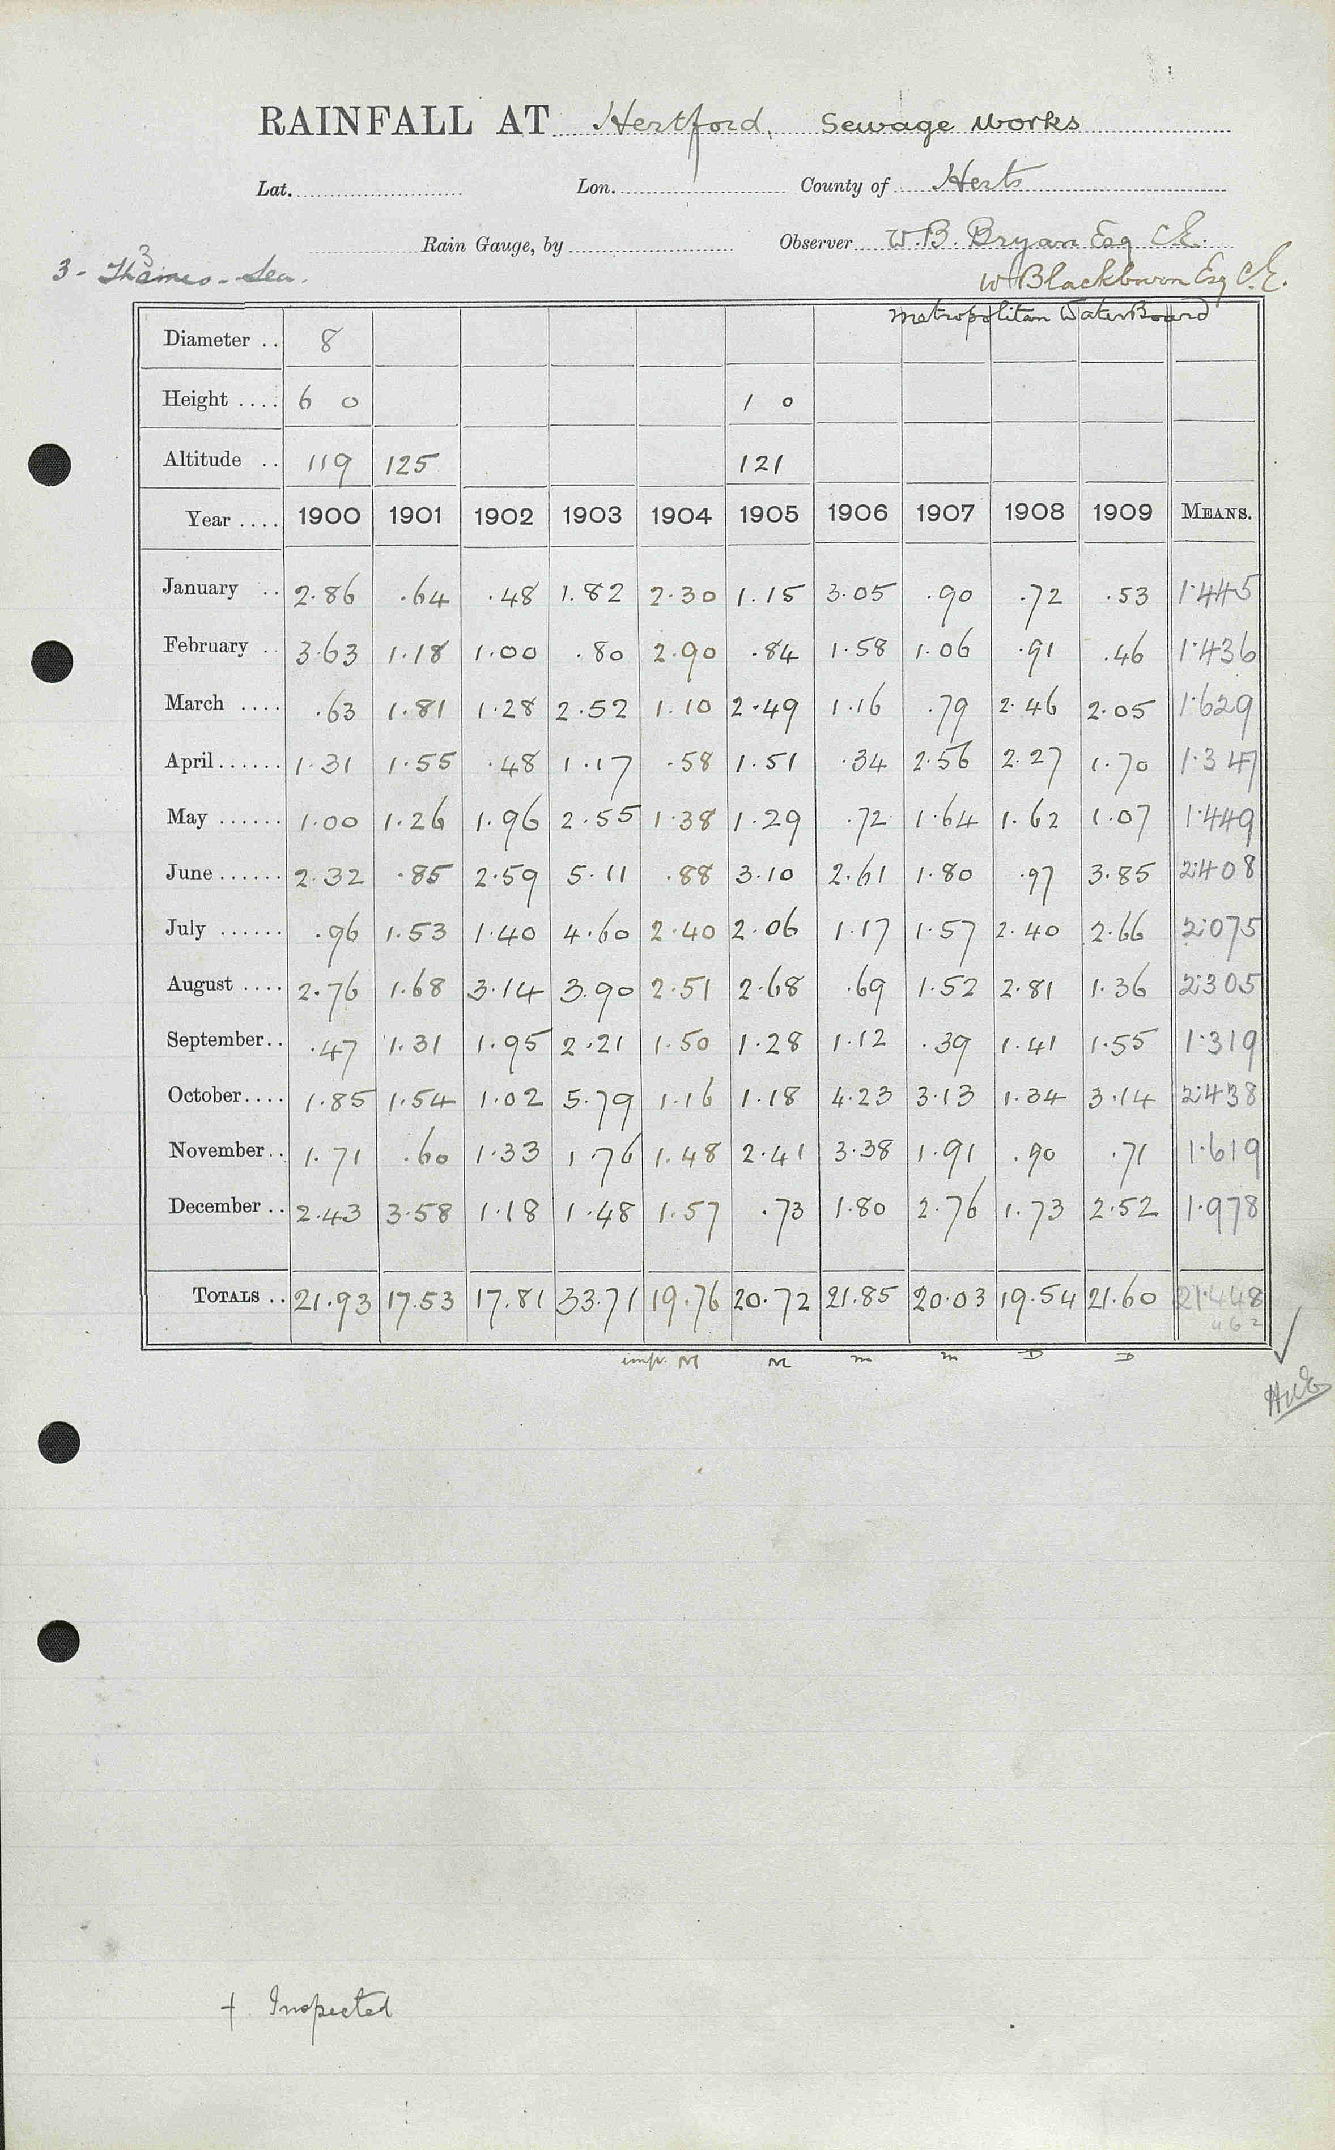 RAINFALL AT Hertford, Sewage Works
Lat. Lon. County of Herts
Rain Gauge, by Observer W.B. Bryan Esq C.E.
3 - Thames - Lea.
3
W Blackburn Esq C.E.
Metropolitan Water Board
Diameter .. 8
Height .... 6 0 1 0
Altitude .. 119 125 121
Year .... 1900 1901 1902 1903 1904 1905 1906 1907 1908 1909 MEANS.
January .. 2.86 .64 .48 1.82 2.30 1.15 3.05 .90 .72 .53 1.445
February .. 3.63 1.18 1.00 .80 2.90 .84 1.58 1.06 .91 .46 1.436
March .... .63 1.81 1.28 2.52 1.10 2.49 1.16 .79 2.46 2.05 1.629
April ...... 1.31 1.55 .48 1.17 .58 1.51 .34 2.56 2.27 1.70 1.347
May ...... 1.00 1.26 1.96 2.55 1.38 1.29 .72 1.64 1.62 1.07 1.449
June ...... 2.32 .85 2.59 5.11 .88 3.10 2.61 1.80 .97 3.85 2.408
July ...... .96 1.53 1.40 4.60 2.40 2.06 1.17 1.57 2.40 2.66 2.075
August .... 2.76 1.68 3.14 3.90 2.51 2.68 .69 1.52 2.81 1.36 2.305
September.. .47 1.31 1.95 2.21 1.50 1.28 1.12 .39 1.41 1.55 1.319
October.... 1.85 1.54 1.02 5.79 1.16 1.18 4.23 3.13 1.34 3.14 2.438
November.. 1.71 .60 1.33 1.76 1.48 2.41 3.38 1.91 .90 .71 1.619
December .. 2.43 3.58 1.18 1.48 1.57 .73 1.80 2.76 1.73 2.52 1.978
TOTALS .. 21.93 17.53 17.81 33.71 19.76 20.72 21.85 20.03 19.54 21.60 21.448
462
impf. M M m m D D
† Inspected